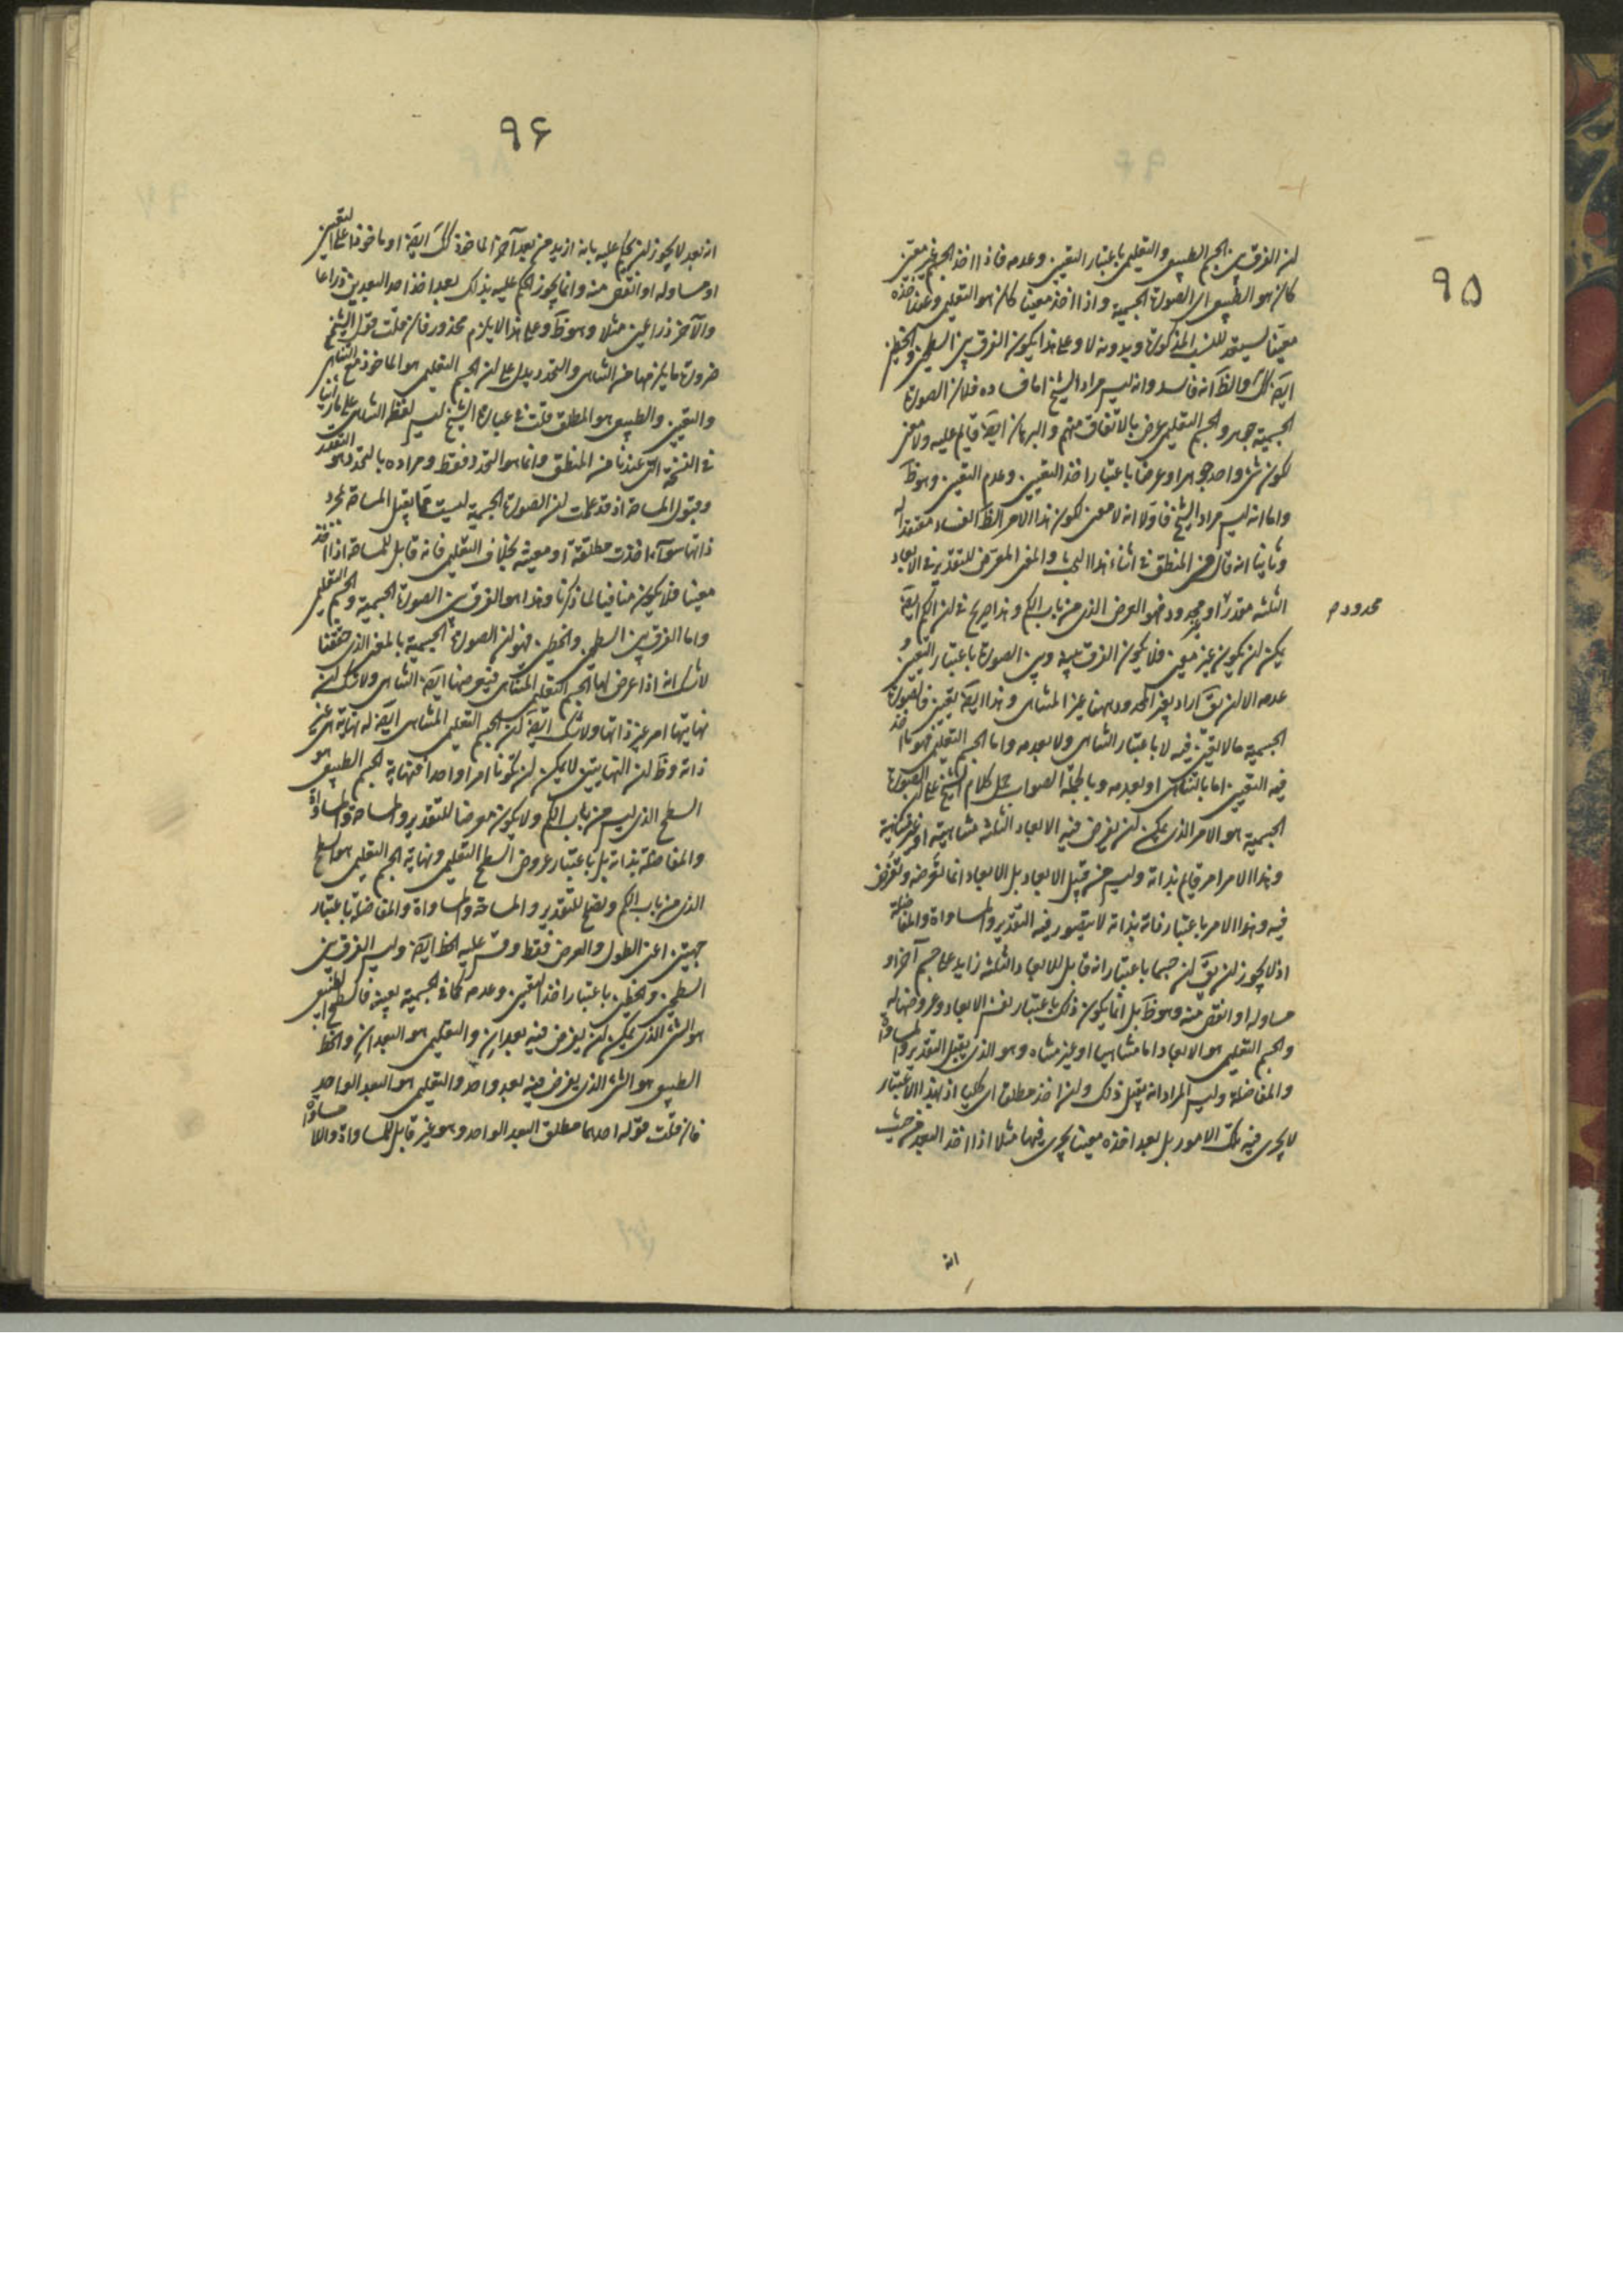 ٩٥
ان الفرق بين الجسم الطبيعى والتعليمى باعتبار التعين وعدمه فاذا اخذ الجسم غير معين
كان هو الطبيعى اى الصورة الجسمية واذا اخذ معينا كان هو التعليمى وعند اخذه
معينا يستعد للنسب المذكورة وبدونه لا وعلى هذا يكون الفرق بين السطحين والخطين
ايضَ كك والظَ انه فاسد وانه ليس مراد الشيخ اما فساده فلان الصورة
الجسمية جوهر والجسم التعليمى عرض بالاتفاق منهم والبرهان ايضَ قايم عليه ولا معنى
لكون شئ واحد جوهرا وعرضا باعتبار اخذ التعيين وعدم التعين وهو ظَ
واما انه ليس مراد الشيخ فاولا انه لا معنى لكون هذا الامر الظَ الفساد معتقدا له
وثانيا انه قال فى المنطق فى اثناء هذا البحث والمعنى المعرض للتقدير فى الابعاد
الثلثة مقدرا او محدود فهو العرض الذى من باب الكم وهذا صريح فى ان الكم ايضَ
محدود م
يمكن ان يكون غير معين فلا يكون الفرق بينه وبين الصورة باعتبار التعين و
عدمه الا ان يقَ اراد بغير المحدود ههنا غير المتناهى وهذا ايضَ تعين فالصورة
الجسمية ما لا يتعين فيه لا باعتبار التناهى ولا بعدمه واما الجسم التعليمى فهو ما اخذ
فيه التعين اما بالتناهى او بعدمه وبالجملة الصواب حمل كلام الشيخ على ان الصورة
الجسمية هو الامر الذى يمكن ان يفرض فيه الابعاد الثلثة متناهية او غير متناهية
وهذا الامر امر قايم بذاته وليس من قبيل الابعاد بل الابعاد انما تعرضه وتفرض
فيه وهذا الامر باعتبار ذاته بذاته لا يتصور فيه التقدير والمساواة والمفاضلة
اذ لا يجوز ان يقَ ان جسما باعتبار انه قابل للابعاد الثلثة زايد على جسم آخر او
مساو له او انقص منه وهو ظَ بل انما يكون ذلك باعتبار نفس الابعاد وعروضها له
والجسم التعليمى هو الابعاد اما متناهيا او غير متناه وهو الذى يقبل التقدير والمساواة
والمفاضلة وليس المراد انه يقبل ذلك ولن اخذ مطلقا اى كليا اذ بهذا الاعتبار
لا يجرى فيه تلك الامور بل بعد اخذه معينا يجرى فيها مثلا اذا اخذ البعد من حيث
انه
٩۶
انه بعد لا يجوز ان يحكم عليه بانه ازيد من بعد آخر الماخوذ كك ايضَ او ماخوذا على التعين
او مساو له او انقص منه وانما يجوز الحكم عليه بذلك بعد اخذ احد البعدين ذراعا
والآخر ذراعين مثلا وهو ظَ وعلى هذا لا يلزم محذور فان قلت قول الشيخ
ضرورة ما يلزمها من التناهى والتحدد يدل على ان الجسم التعليمى هو الماخوذ مع التناهى
والتعين والطبيعى هو المطلق قلت فى عبارة الشيخ ليس لفظ التناهى على ما رأينا
فى النسخة التى عندنا من المنطق وانما هو التحدد فقط ومراده بالتحدد هو التقدير
وقبول المساحة اذ قد علمت ان الصورة الجسمية ليست مما يقبل المساحة بمجرد
ذاتها سواء اخذت مطلقة او معينة بخلاف التعليمى فانه قابل للمساحة اذا اخذ
معينا فلا يكون منافيا لما ذكرنا وهذا هو الفرق بين الصورة الجسمية والجسم التعليمى
واما الفرق بين السطحين والخطين فهو ان الصورة الجسمية بالمعنى الذى حققنا
لا شك انه اذا عرض لها الجسم التعليمى المتناهى فيعرضها ايضَ التناهى ولا شك ان
نهايتها امر غير ذاتها ولا شك ايضَ ان الجسم التعليمى المتناهى ايضَ له نهاية هى غير
ذاته وظَ ان النهايتين لا يمكن ان تكونا امرا واحدا فنهاية الجسم الطبيعى هو
السطح الذى ليس من باب الكم ولا يكون معرضا للتقدير والمساحة والمساواة
والمفاضلة بذاته بل باعتبار عروض السطح التعليمى ونهاية الجسم التعليمى هو السطح
الذى من باب الكم ويصح للتقدير والمساحة والمساواة والمفاضلة باعتبار
جهتين اعنى الطول والعرض فقط وقس عليه الخط ايضَ وليس الفرق بين
السطحين والخطين باعتبار اخذ التعين وعدمه كما فى الجسمية بعينه فالسطح الطبيعى
هو الشئ الذى يمكن ان يفرض فيه بعدان والتعليمى هو البعدان والخط
الطبيعى هو الشئ الذى يفرض فيه بعد واحد والتعليمى هو البعد الواحد
فان قلت قوله احدهما مطلق البعد الواحد وهو غير قابل للمساواة واللا مساواة